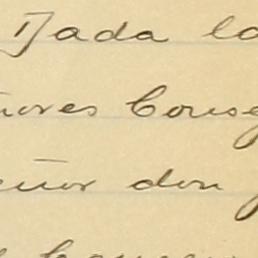 Dada la
ñores Conse
eñor don